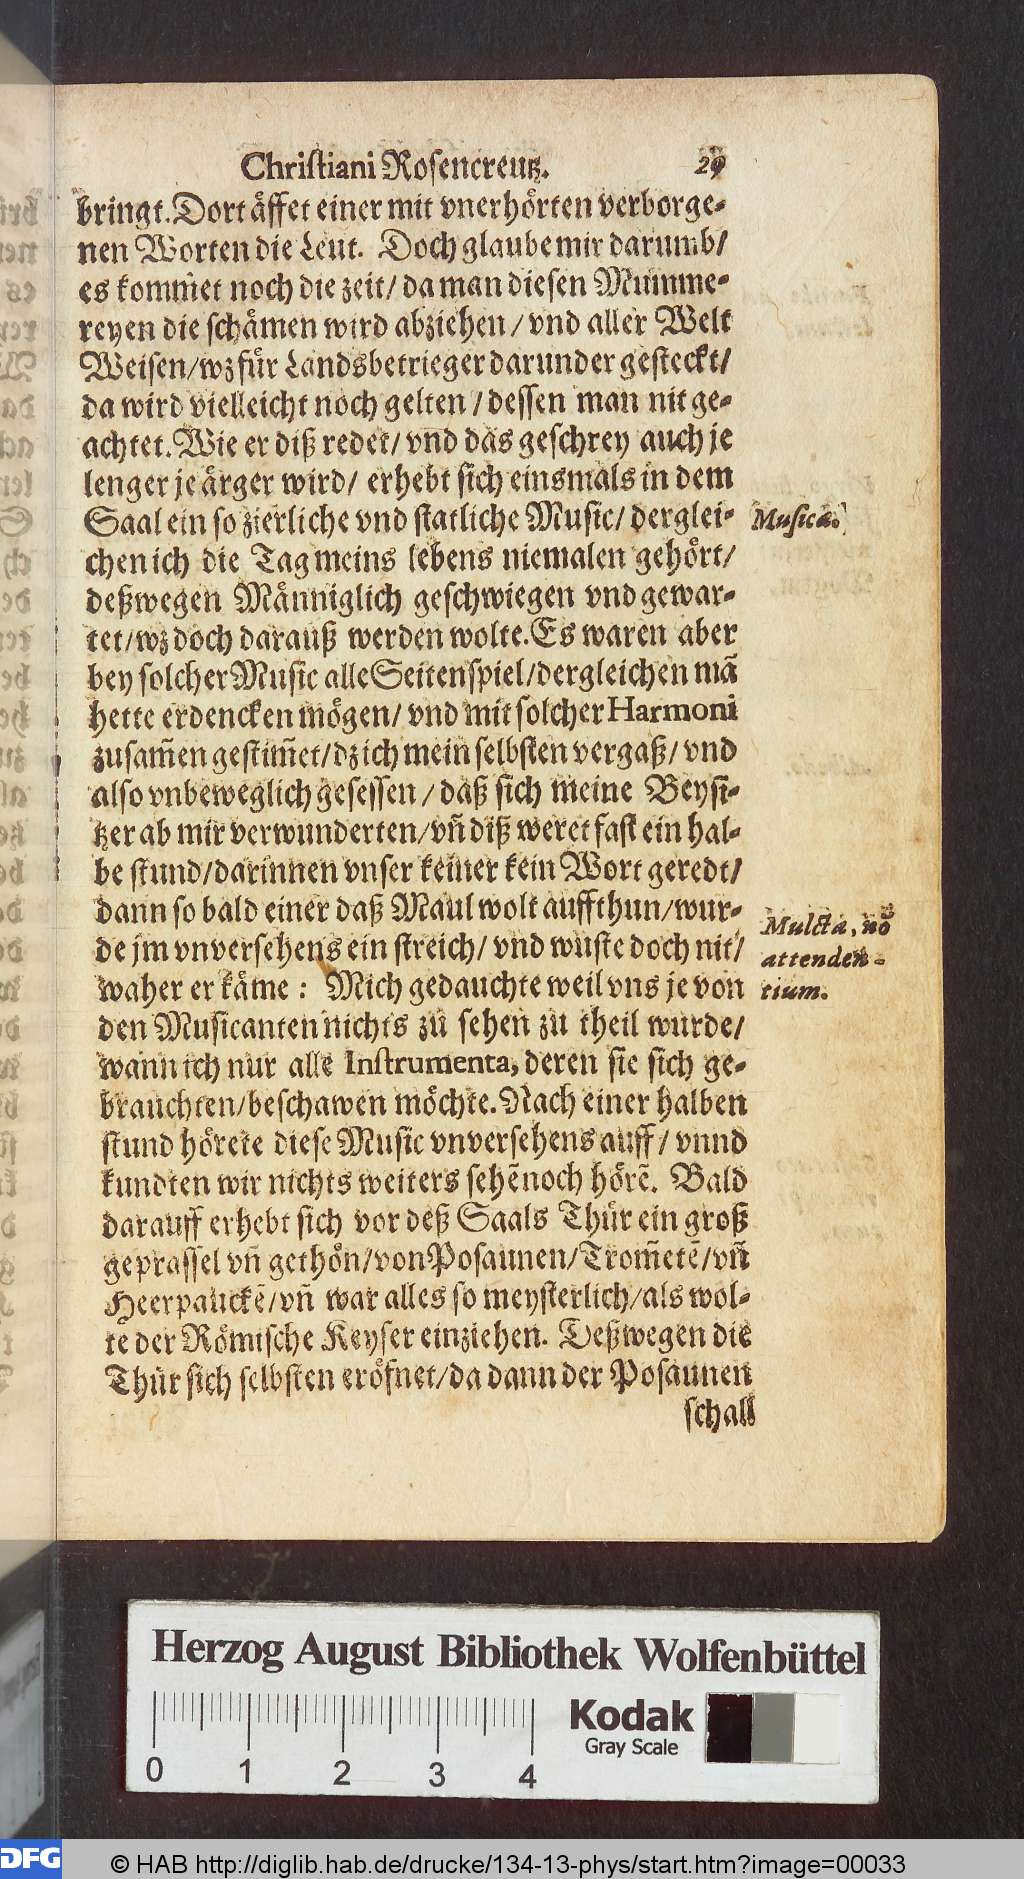 Christiani Rosencreutz. 29
bringt. Dort äffet einer mit vnerhörten verborge-
nen Worten die Leut. Doch glaube mir darumb/
es kommet noch die zeit/ da man diesen Mumme-
reyen die schämen wird abziehen/ vnd aller Welt
Weisen/ wz für Landsbetrieger darunder gesteckt/
da wird vielleicht noch gelten/ dessen man nit ge-
achtet. Wie er diß redet/ vnd das geschrey auch je
lenger je ärger wird/ erhebt sich einsmals in dem
Saal ein so zierliche vnd statliche Music/ derglei-
Musica.
chen ich die Tag meins lebens niemalen gehört/
deßwegen Männiglich geschwiegen vnd gewar-
tet/ wz doch darauß werden wolte. Es waren aber
bey solcher Music alle Seitenspiel/ dergleichen mã
hette erdencken mögen/ vnd mit solcher Harmoni
zusam̃en gestim̃et/ dz ich mein selbsten vergaß/ vnd
also vnbeweglich gesessen/ daß sich meine Beysi-
tzer ab mir verwunderten/ vñ diß weret fast ein hal-
be stund/ darinnen vnser keiner kein Wort geredt/
dann so bald einer daß Maul wolt auffthun/ wur-
de jm vnversehens ein streich/ vnd wuste doch nit/
Mulcta, nõ
attenden-
tium.
waher er käme: Mich gedauchte weil vns je von
den Musicanten nichts zu sehen zu theil wurde/
wann ich nur alle Instrumenta, deren sie sich ge-
brauchten/ beschawen möchte. Nach einer halben
stund hörete diese Music vnversehens auff/ vnnd
kundten wir nichts weiters sehẽ noch hörẽ. Bald
darauff erhebt sich vor deß Saals Thür ein groß
geprassel vñ gethön/ von Posaunen/ Trom̃etẽ/ vñ
Heerpauckẽ/ vñ war alles so meysterlich/ als wol-
te der Römische Keyser einziehen. Deßwegen die
Thür sich selbsten eröfnet/ da dann der Posaunen
schall
Herzog August Bibliothek Wolfenbüttel
Kodak
Gray Scale
0 1 2 3 4
DFG
© HAB http://diglib.hab.de/drucke/134-13-phys/start.htm?image=00033